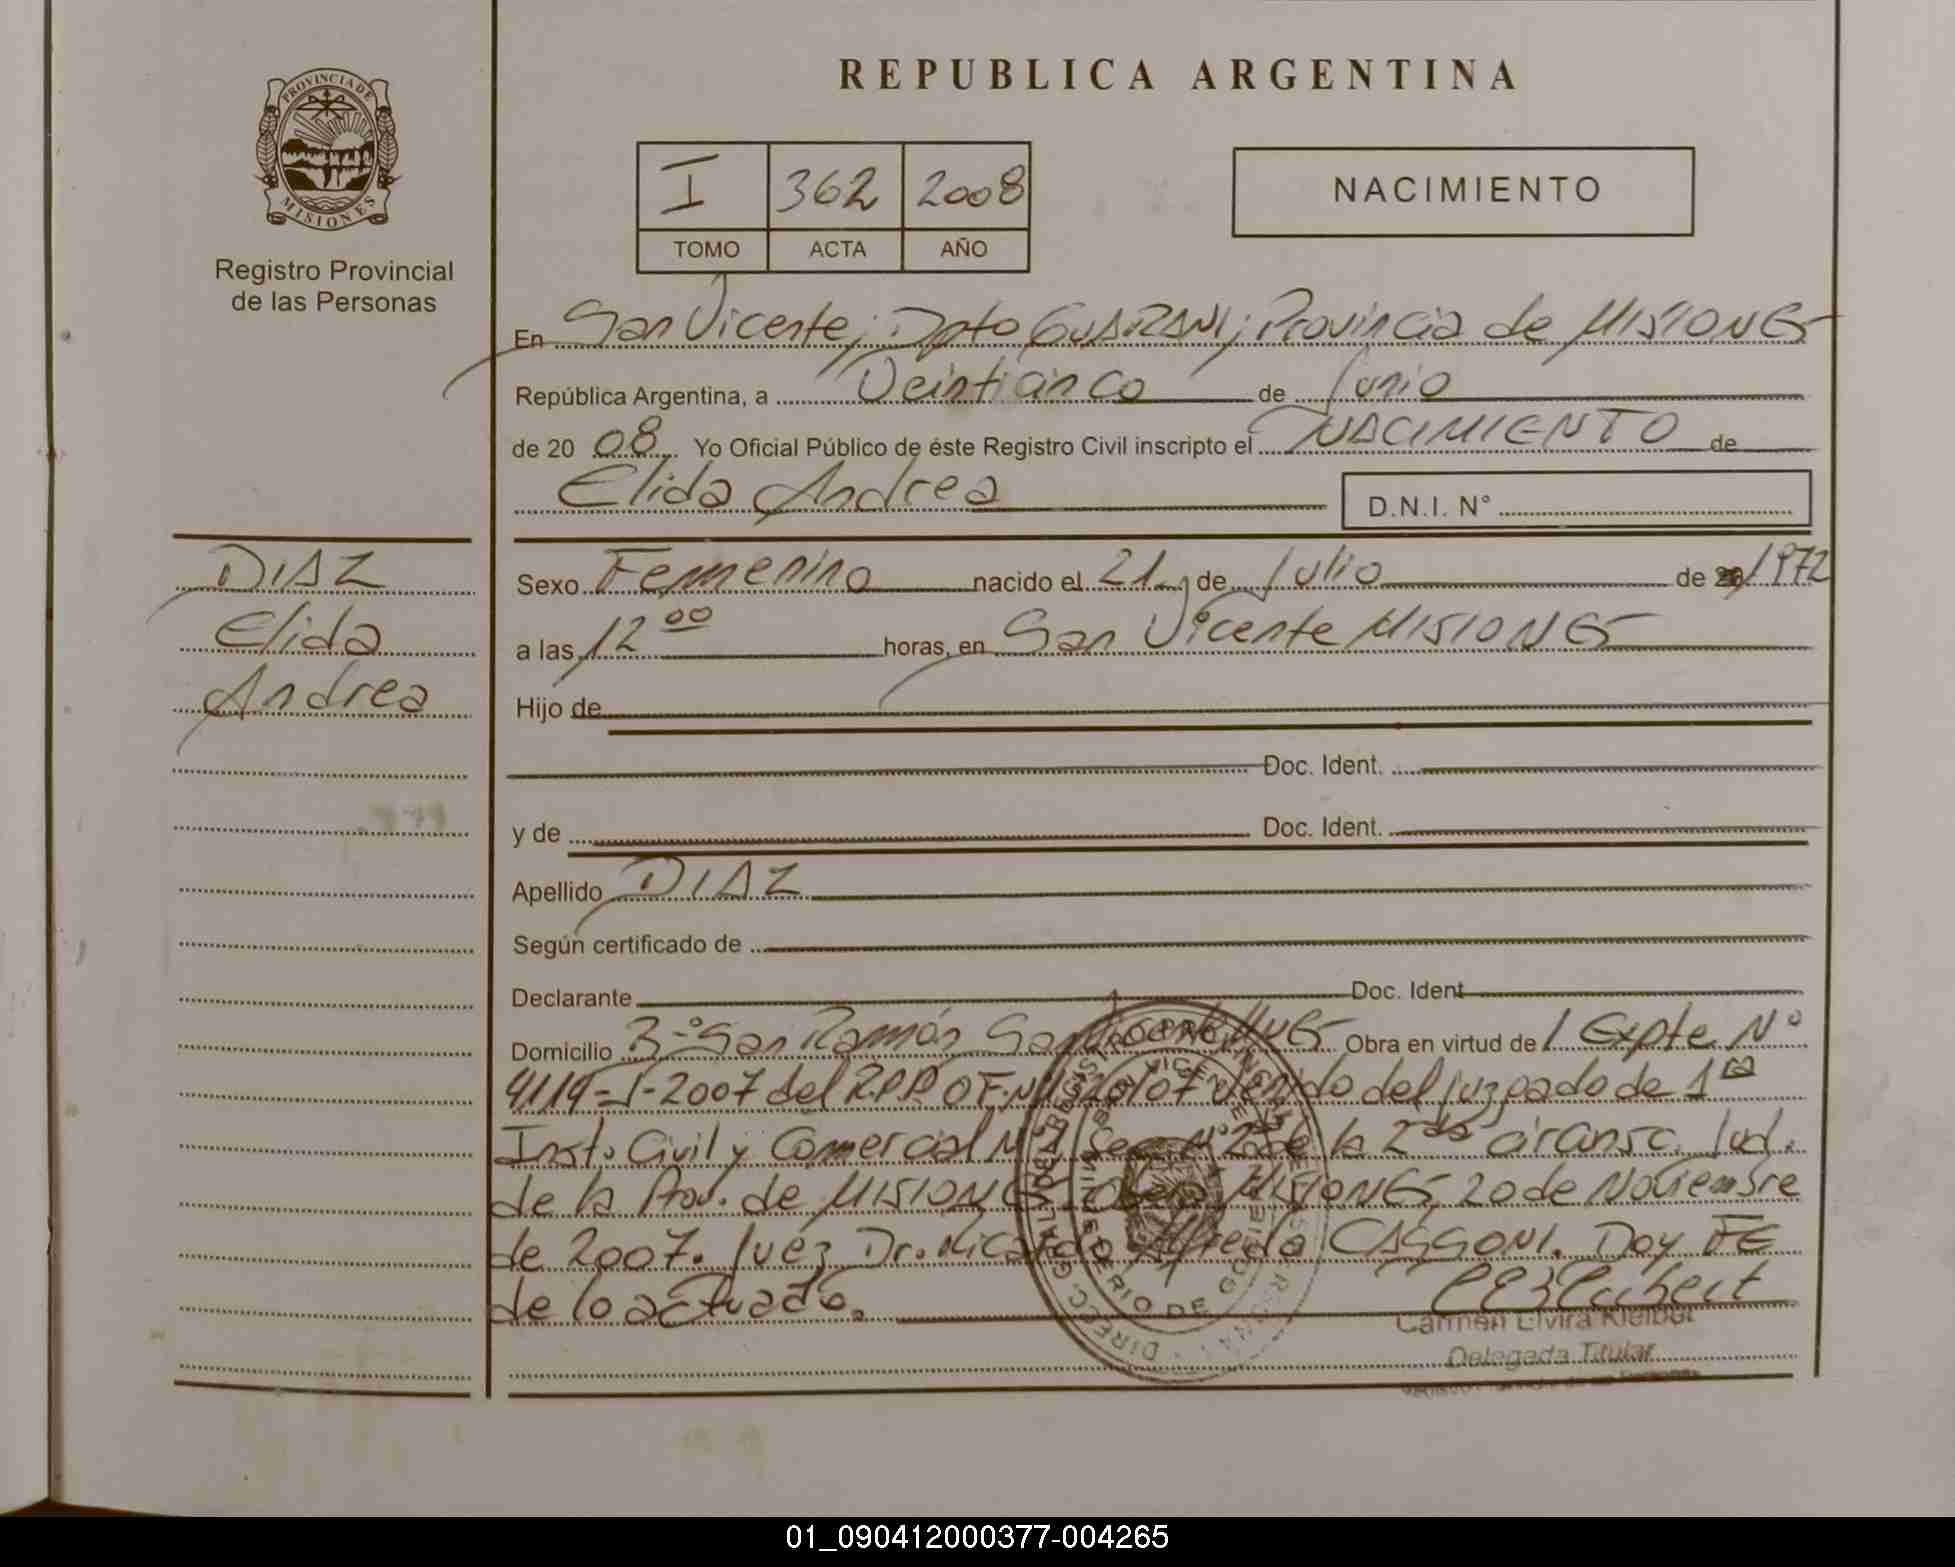 PROVINCIA DE
MISIONES
Registro Provincial
de las Personas
REPUBLICA ARGENTINA
I 362 2008
TOMO ACTA AÑO
NACIMIENTO
En San Vicente; Dpto GUARANI; Provincia de MISIONES
República Argentina, a Veinticinco de Junio
de 20 08 Yo Oficial Público de éste Registro Civil inscripto el NACIMIENTO de
Elida Andrea
D.N.I. N°
DIAZ
Elida
Andrea
Sexo Femenino nacido el 21 de Julio de 1972
a las 12 00 horas, en San Vicente MISIONES
Hijo de
Doc. Ident.
y de Doc. Ident.
Apellido DIAZ
Según certificado de
Declarante Doc. Ident
Domicilio B° San Ramón San Vicente Obra en virtud de Expte N°
4119-J-2007 del R.P.P. OF. del Juzgado de 1ra
Inst. Civil y Comercial N° 1 Sec. N° 2 de la 2da circunsc. Jud.
de la Prov. de MISIONES Oberá MISIONES, 20 de Noviembre
de 2007. Juez Dr. Ricardo Alfredo CASSONI. Doy FE
de lo actuado.
Carmen Elvira
Delegada Titular
01_090412000377-004265